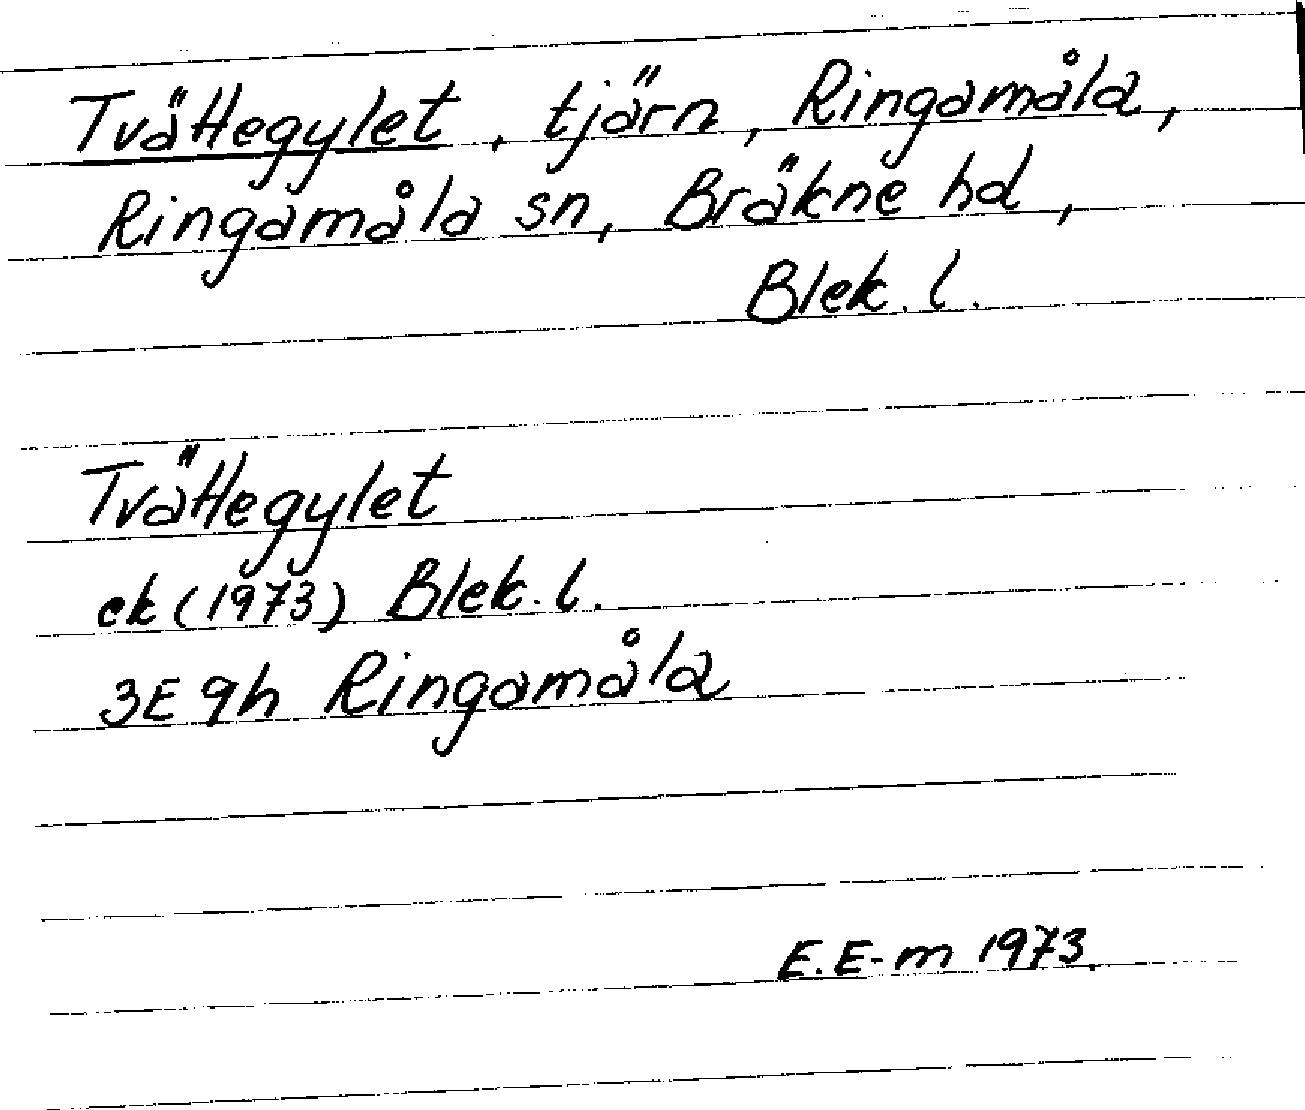 Tvättegylet, tjärn, Ringamåla,
Ringamåla sn, Bräkne hd,
Blek. l.
Tvättegylet
ek (1973) Blek. l.
3E 9h Ringamåla
E. E-m 1973.